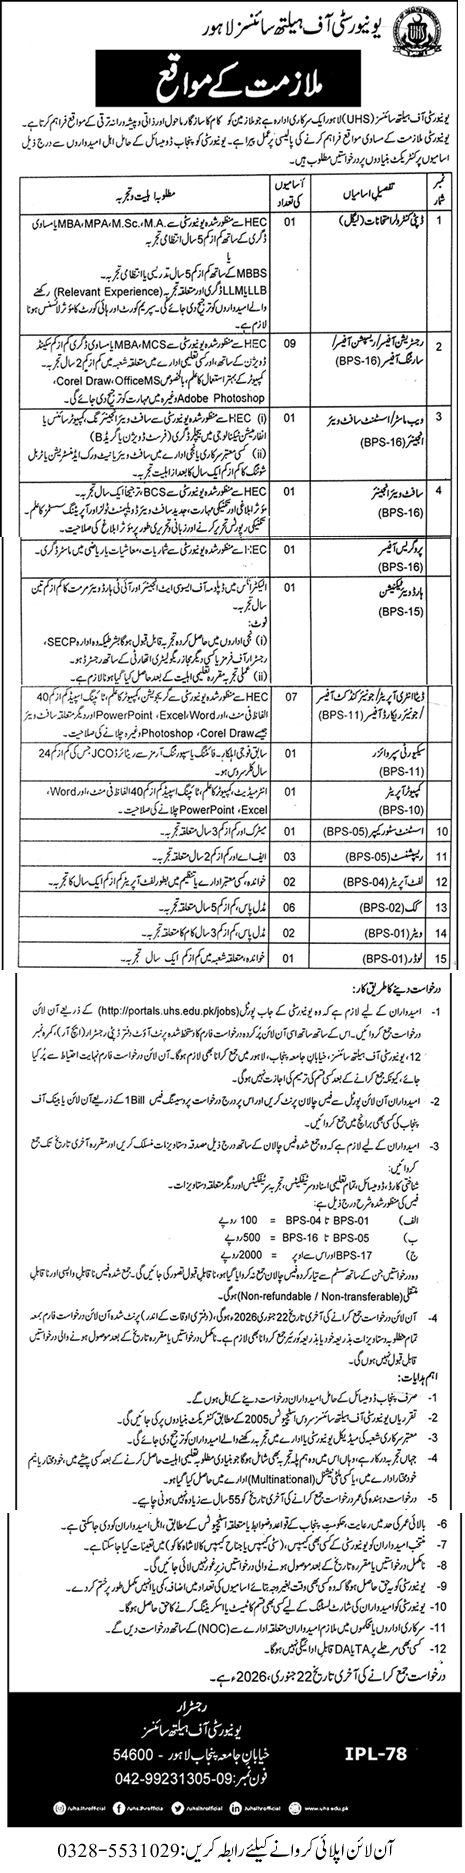 یونیورسٹی آف ہیلتھ سائنسز لاہور
ملازمت کے مواقع
یونیورسٹی آف ہیلتھ سائنسز (UHS) لاہور ایک سرکاری ادارہ ہے جو ملازمین کو کام کا سازگار ماحول اور ذاتی و پیشہ ورانہ ترقی کے مواقع فراہم کرتا ہے۔
یونیورسٹی ملازمت کے مساوی مواقع فراہم کرنے کی پالیسی پر عمل پیرا ہے۔ یونیورسٹی کو پنجاب ڈومیسائل کے حامل اہل امیدواروں سے درج ذیل
اسامیوں پر کنٹریکٹ بنیادوں پر درخواستیں مطلوب ہیں۔
نمبر شمار تفصیل اسامیاں اسامیوں کی تعداد مطلوبہ اہلیت و تجربہ
1 ڈپٹی کنٹرولر امتحانات (لیگل) 01 HEC سے منظور شدہ یونیورسٹی سے MBA، MPA، M.Sc، M.A. یا مساوی
ڈگری کے ساتھ کم از کم 5 سال انتظامی تجربہ
یا
MBBS کے ساتھ کم از کم 5 سال تدریسی یا انتظامی تجربہ۔
LLB یا LLM ڈگری اور متعلقہ تجربہ (Relevant Experience) رکھنے
والے امیدواروں کو ترجیح دی جائے گی۔ سپریم کورٹ اور ہائی کورٹ کا مؤثر لائسنس ہونا
لازم ہے۔
2 رجسٹریشن آفیسر/ ریسپشن آفیسر/ سارٹنگ آفیسر (BPS-16) 09 HEC سے منظور شدہ یونیورسٹی سے MBA، MCS یا مساوی ڈگری کم از کم سیکنڈ
ڈویژن کے ساتھ، اور کسی تعلیمی ادارے میں متعلقہ شعبہ میں کم از کم 2 سال تجربہ۔
کمپیوٹر کے بہتر استعمال کا علم، بالخصوص Corel Draw، Office MS،
Adobe Photoshop وغیرہ میں مہارت کو ترجیح دی جائے گی۔
3 ویب ماسٹر/ اسسٹنٹ سافٹ ویئر انجینئر (BPS-16) 01 (i) HEC سے منظور شدہ یونیورسٹی سے سافٹ ویئر انجینئرنگ، کمپیوٹر سائنس یا
انفارمیشن ٹیکنالوجی میں بیچلر ڈگری (فرسٹ ڈویژن یا گریڈ B)
(ii) کسی معتبر سرکاری یا نجی ادارے میں سافٹ ویئر یا نیٹ ورک ایڈمنسٹریشن یا ٹربل
شوٹنگ کا کم از کم ایک سال کا بعد از اہلیت تجربہ۔
4 سافٹ ویئر انجینئر (BPS-16) 01 HEC سے منظور شدہ یونیورسٹی سے BCS، ترجیحاً ایک سال تجربہ۔
مؤثر ابلاغی اور تکنیکی مہارت، جدید سافٹ ویئر ڈویلپمنٹ ٹولز اور آپریٹنگ سسٹمز کا علم۔
تکنیکی رپورٹس تحریر کرنے اور زبانی و تحریری طور پر مؤثر ابلاغ کی صلاحیت۔
پروگریس آفیسر (BPS-16) 01 HEC سے منظور شدہ یونیورسٹی سے شماریات، معاشیات یا ریاضی میں ماسٹر ڈگری۔
ہارڈ ویئر ٹیکنیشن (BPS-15) 01 الیکٹرانکس میں ڈپلومہ آف ایسوسی ایٹ انجینئر اور آئی ٹی ہارڈ ویئر مرمت کا کم از کم تین
سال تجربہ۔
نوٹ:
(i) نجی اداروں میں حاصل کردہ تجربہ قابل قبول ہوگا بشرطیکہ وہ ادارہ SECP،
رجسٹرار آف فرمز یا کسی دیگر مجاز ریگولیٹری اتھارٹی کے ساتھ رجسٹرڈ ہو۔
(ii) عملی تجربہ مقررہ تعلیمی اہلیت کے بعد حاصل کیا گیا ہونا لازم ہے۔
ڈیٹا انٹری آپریٹر/ جونیئر کنڈکٹ آفیسر/ جونیئر ریکارڈ آفیسر (BPS-11) 07 HEC سے منظور شدہ یونیورسٹی سے گریجویشن، کمپیوٹر کا علم، ٹائپنگ اسپیڈ کم از کم 40
الفاظ فی منٹ، اور Word، Excel، PowerPoint اور دیگر متعلقہ سافٹ ویئر
جیسے Corel Draw، Photoshop وغیرہ چلانے کی صلاحیت۔
سیکیورٹی سپروائزر (BPS-11) 02 سابق فوجی اہلکار۔ فائٹنگ یا سپورٹنگ آرمز سے ریٹائرڈ JCO جس کی کم از کم 24
سال کلر سروس ہو۔
کمپیوٹر آپریٹر (BPS-10) 01 انٹرمیڈیٹ، کمپیوٹر کا علم، ٹائپنگ اسپیڈ کم از کم 40 الفاظ فی منٹ، اور Word،
Excel، PowerPoint چلانے کی صلاحیت۔
10 اسسٹنٹ سٹور کیپر (BPS-05) 01 میٹرک اور کم از کم 3 سال متعلقہ تجربہ۔
11 ریسپشنسٹ (BPS-05) 03 ایف اے اور کم از کم 2 سال متعلقہ تجربہ۔
12 لفٹ آپریٹر (BPS-04) 02 خواندہ، کسی معتبر ادارے یا تنظیم میں بطور لفٹ آپریٹر کم از کم ایک سال کا تجربہ۔
13 کک (BPS-02) 06 مڈل پاس، کم از کم 5 سال متعلقہ تجربہ۔
14 ویٹر (BPS-01) 02 مڈل پاس، کم از کم 3 سال کام کا متعلقہ تجربہ۔
15 لوڈر (BPS-01) 01 خواندہ، متعلقہ شعبہ میں کم از کم ایک سال تجربہ۔
درخواست دینے کا طریق کار:
1- امیدواران کے لیے لازم ہے کہ وہ یونیورسٹی کے جاب پورٹل (http://portals.uhs.edu.pk/jobs) کے ذریعے آن لائن درخواست
جمع کروائیں۔ اس کے ساتھ ساتھ اسی آن لائن پُر کردہ درخواست فارم کا دستخط شدہ پرنٹ آؤٹ دفتر ڈپٹی رجسٹرار (ایچ آر)، کمرہ نمبر
12، یونیورسٹی آف ہیلتھ سائنسز، خیابانِ جامعہ پنجاب، لاہور میں جمع کرانا بھی لازم ہوگا۔ آن لائن درخواست فارم نہایت احتیاط سے پُر کیا
جائے، کیونکہ جمع کرانے کے بعد کسی قسم کی ترمیم کی اجازت نہیں ہوگی۔
2- امیدواران آن لائن پورٹل سے فیس چالان پرنٹ کریں اور اس پر درج درخواست پروسیسنگ فیس 1Bill کے ذریعے آن لائن یا بینک آف
پنجاب کی کسی بھی برانچ میں جمع کروائیں۔
3- امیدواران کے لیے لازم ہے کہ وہ جمع شدہ فیس چالان کے ساتھ درج ذیل مصدقہ دستاویزات منسلک کریں اور مقررہ آخری تاریخ تک جمع
کروائیں:
شناختی کارڈ، ڈومیسائل، تمام تعلیمی اسناد و سرٹیفکیٹس، تجربہ سرٹیفکیٹس اور دیگر متعلقہ دستاویزات۔
فیس کی منظور شدہ شرح درج ذیل ہے:
الف) BPS-01 تا BPS-04 = 100 روپے
ب) BPS-05 تا BPS-16 = 500 روپے
ج) BPS-17 اور اس سے اوپر = 2000 روپے
وہ درخواستیں جن کے ساتھ سسٹم سے تیار کردہ فیس چالان جمع نہ کروایا گیا ہو، ناقابلِ قبول تصور کی جائیں گی۔ جمع شدہ فیس ناقابلِ واپسی اور ناقابلِ
منتقلی (Non-refundable / Non-transferable) ہوگی۔
4- آن لائن درخواست جمع کرانے کی آخری تاریخ 22 جنوری 2026ء ہوگی، (دفتری اوقات کے اندر)۔ پرنٹ شدہ آن لائن درخواست فارم بمعہ
تمام مطلوبہ دستاویزات بذریعہ خود یا بذریعہ کوریئر جمع کروانا بھی لازم ہے۔ نامکمل درخواستیں یا مقررہ تاریخ کے بعد موصول ہونے والی درخواستیں
قابلِ قبول نہیں ہوں گی۔
اہم ہدایات:
1- صرف پنجاب ڈومیسائل کے حامل امیدواران درخواست دینے کے اہل ہوں گے۔
2- تقرریاں یونیورسٹی آف ہیلتھ سائنسز سروس اسٹیچوٹس 2005 کے مطابق کنٹریکٹ بنیادوں پر کی جائیں گی۔
3- معتبر سرکاری شعبہ کی میڈیکل یونیورسٹی یا ادارے میں تجربہ رکھنے والے امیدواران کو ترجیح دی جائے گی۔
4- جہاں تجربہ درکار ہے، وہاں اس میں وہ ہم پلہ تجربہ بھی شامل ہوگا جو بنیادی مطلوبہ تعلیمی اہلیت حاصل کرنے کے بعد کسی پیشے میں، خود مختار یا نیم
خود مختار ادارہ میں، یا کسی ملٹی نیشنل (Multinational) ادارے میں حاصل کیا گیا ہو۔
5- درخواست دہندہ کی عمر درخواست جمع کرانے کی آخری تاریخ کو 55 سال سے زیادہ نہیں ہونی چاہیے۔
6- بالائی عمر کی حد میں رعایت، حکومتِ پنجاب کے قواعد و ضوابط یا متعلقہ اسٹیچوٹس کے مطابق، اہل امیدواران کو دی جا سکتی ہے۔
7- منتخب امیدواران کو یونیورسٹی کے کسی بھی کیمپس، (سٹی کیمپس یا جناح کیمپس کالا شاہ کاکو) میں تعینات کیا جا سکتا ہے۔
8- نامکمل درخواستیں یا مقررہ تاریخ کے بعد موصول ہونے والی درخواستیں زیرِ غور نہیں لائی جائیں گی۔
9- یونیورسٹی کو یہ حق حاصل ہوگا کہ وہ کسی بھی وقت بغیر وجہ بتائے اسامیوں کی تعداد میں اضافہ، کمی یا انہیں مکمل طور پر ختم کر دے۔
10- یونیورسٹی کو امیدواران کی شارٹ لسٹنگ کے لیے کسی بھی قسم کا ٹیسٹ یا اسکریننگ کرنے کا حق حاصل ہوگا۔
11- سرکاری اداروں یا محکموں میں ملازم امیدواران متعلقہ ادارے سے (NOC) کے ساتھ درخواست دیں گے۔
12- کسی بھی مرحلے پر TA یا DA قابلِ ادائیگی نہیں ہوگا۔
درخواست جمع کرانے کی آخری تاریخ 22 جنوری، 2026ء ہے۔
رجسٹرار
یونیورسٹی آف ہیلتھ سائنسز
خیابانِ جامعہ پنجاب لاہور - 54600
فون نمبر: 09-99231305-042
IPL-78
/uhslhrofficial /uhslhrofficial /uhslhrofficial /uhslhrofficial www.uhs.edu.pk
آن لائن اپلائی کروانے کیلئے رابطہ کریں: 0328-5531029